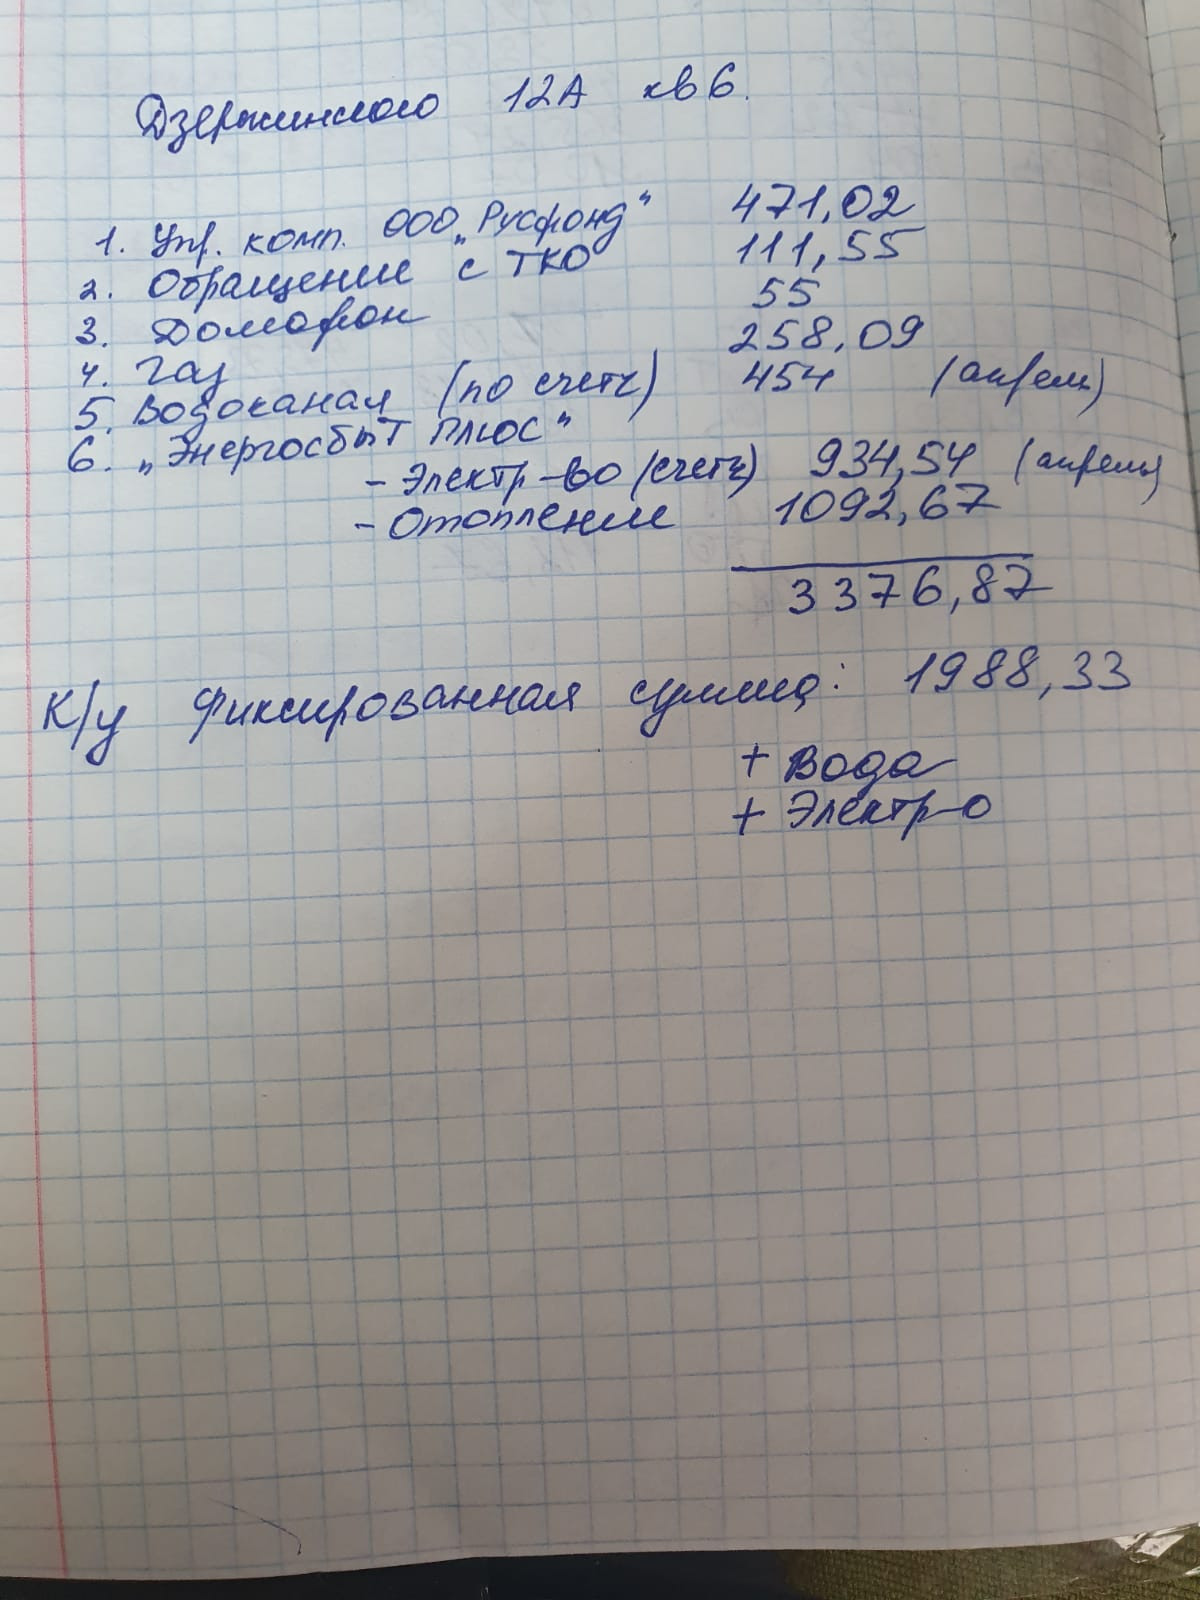 Дзержинского 12А кв 6.
1. Упр. комп. ООО „Русфонд" 471,02
2. Обращение с ТКО 111,55
3. Домофон 55
4. Газ 258,09
5. Водоканал (по счетч) 454 (апрель)
6. „Энергосбыт Плюс"
- Электр-во (счетч) 934,54 (апрель)
- Отопление 1092,67
3376,87
К/у фиксированная сумма: 1988,33
+ Вода
+ Электр-о